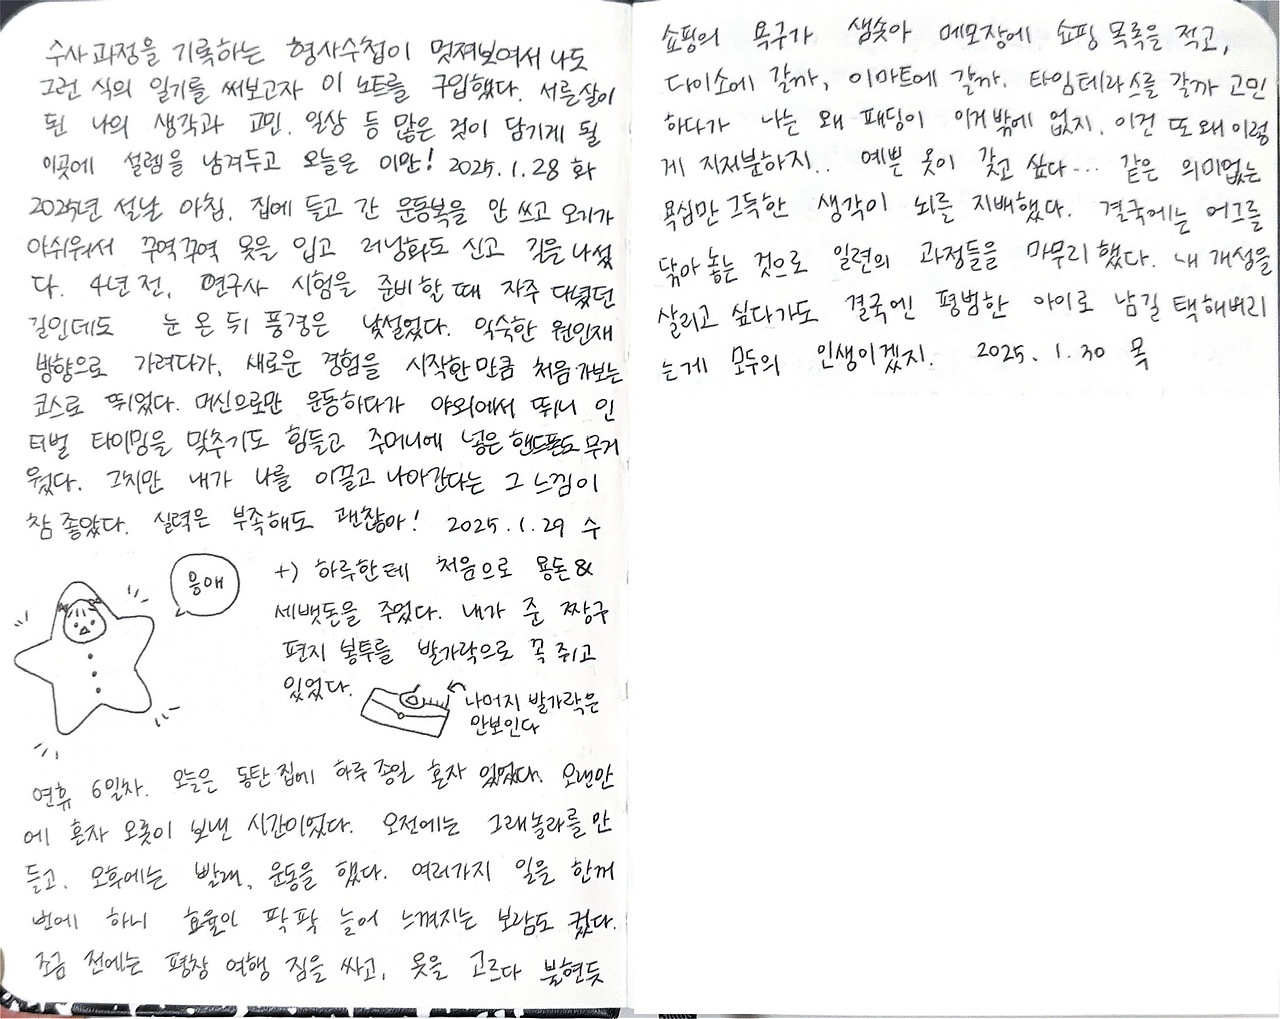 수사과정을 기록하는 형사수첩이 멋져보여서 나도
그런 식의 일기를 써보고자 이 노트를 구입했다. 서른살이
된 나의 생각과 고민, 일상 등 많은 것이 담기게 될
이곳에 설렘을 남겨두고 오늘은 이만! 2025.1.28 화
2025년 설날 아침, 집에 들고 간 운동복을 안 쓰고 오기가
아쉬워서 꾸역꾸역 옷을 입고 러닝화도 신고 길을 나섰
다. 4년 전, 연구사 시험을 준비할 때 자주 다녔던
길인데도 눈 온 뒤 풍경은 낯설었다. 익숙한 원인재
방향으로 가려다가, 새로운 경험을 시작한 만큼 처음 가보는
코스로 뛰었다. 머신으로만 운동하다가 야외에서 뛰니 인
터벌 타이밍을 맞추기도 힘들고 주머니에 넣은 핸드폰도 무거
웠다. 그치만 내가 나를 이끌고 나아간다는 그 느낌이
참 좋았다. 실력은 부족해도 괜찮아! 2025.1.29 수
응애
+) 하루한테 처음으로 용돈&
세뱃돈을 주었다. 내가 준 짱구
편지 봉투를 발가락으로 꼭 쥐고
있었다.
나머지 발가락은
안보인다
연휴 6일차. 오늘은 동탄 집에 하루 종일 혼자 있었다. 오랜만
에 혼자 오롯이 보낸 시간이었다. 오전에는 그래놀라를 만
들고, 오후에는 빨래, 운동을 했다. 여러가지 일을 한꺼
번에 하니 효율이 팍팍 늘어 느껴지는 보람도 컸다.
조금 전에는 평창 여행 짐을 싸고, 옷을 고르다 불현듯
쇼핑의 욕구가 샘솟아 메모장에 쇼핑 목록을 적고,
다이소에 갈까, 이마트에 갈까, 타임테라스를 갈까 고민
하다가 나는 왜 패딩이 이거밖에 없지, 이건 또 왜 이렇
게 지저분하지.. 예쁜 옷이 갖고 싶다... 같은 의미없는
욕심만 그득한 생각이 뇌를 지배했다. 결국에는 어그를
닦아 놓는 것으로 일련의 과정들을 마무리했다. 내 개성을
살리고 싶다가도 결국엔 평범한 아이로 남길 택해버리
는게 모두의 인생이겠지. 2025.1.30 목